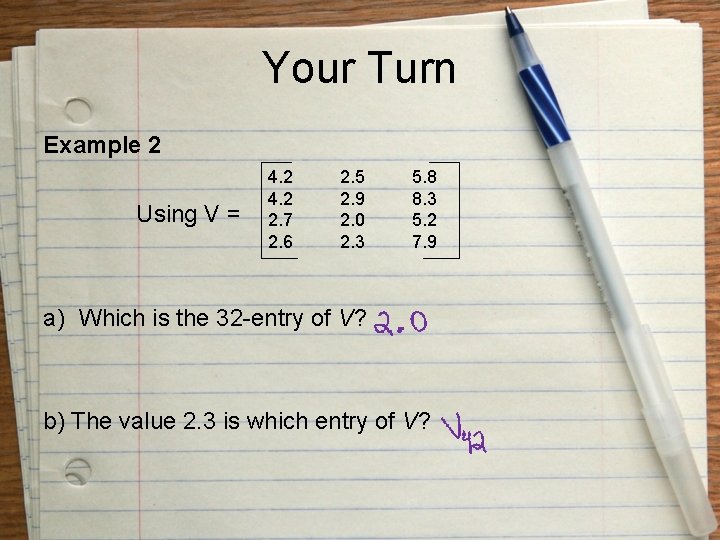 Your Turn
Example 2
Using V =
4.2 2.5 5.8
4.2 2.9 8.3
2.7 2.0 5.2
2.6 2.3 7.9
a) Which is the 32-entry of V? 2.0
b) The value 2.3 is which entry of V? V42